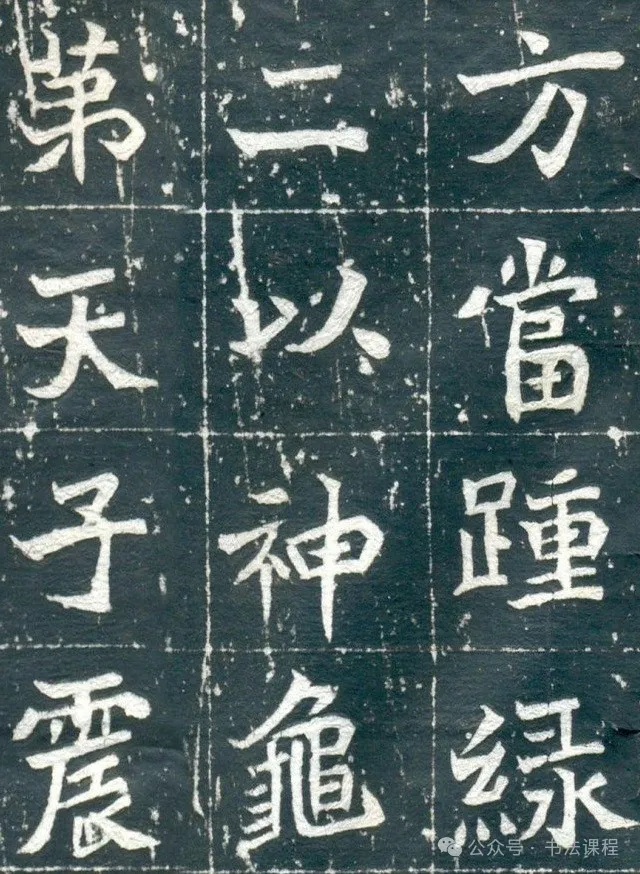 方當踵綠
二以神龜
第天子震
公众号·书法课程